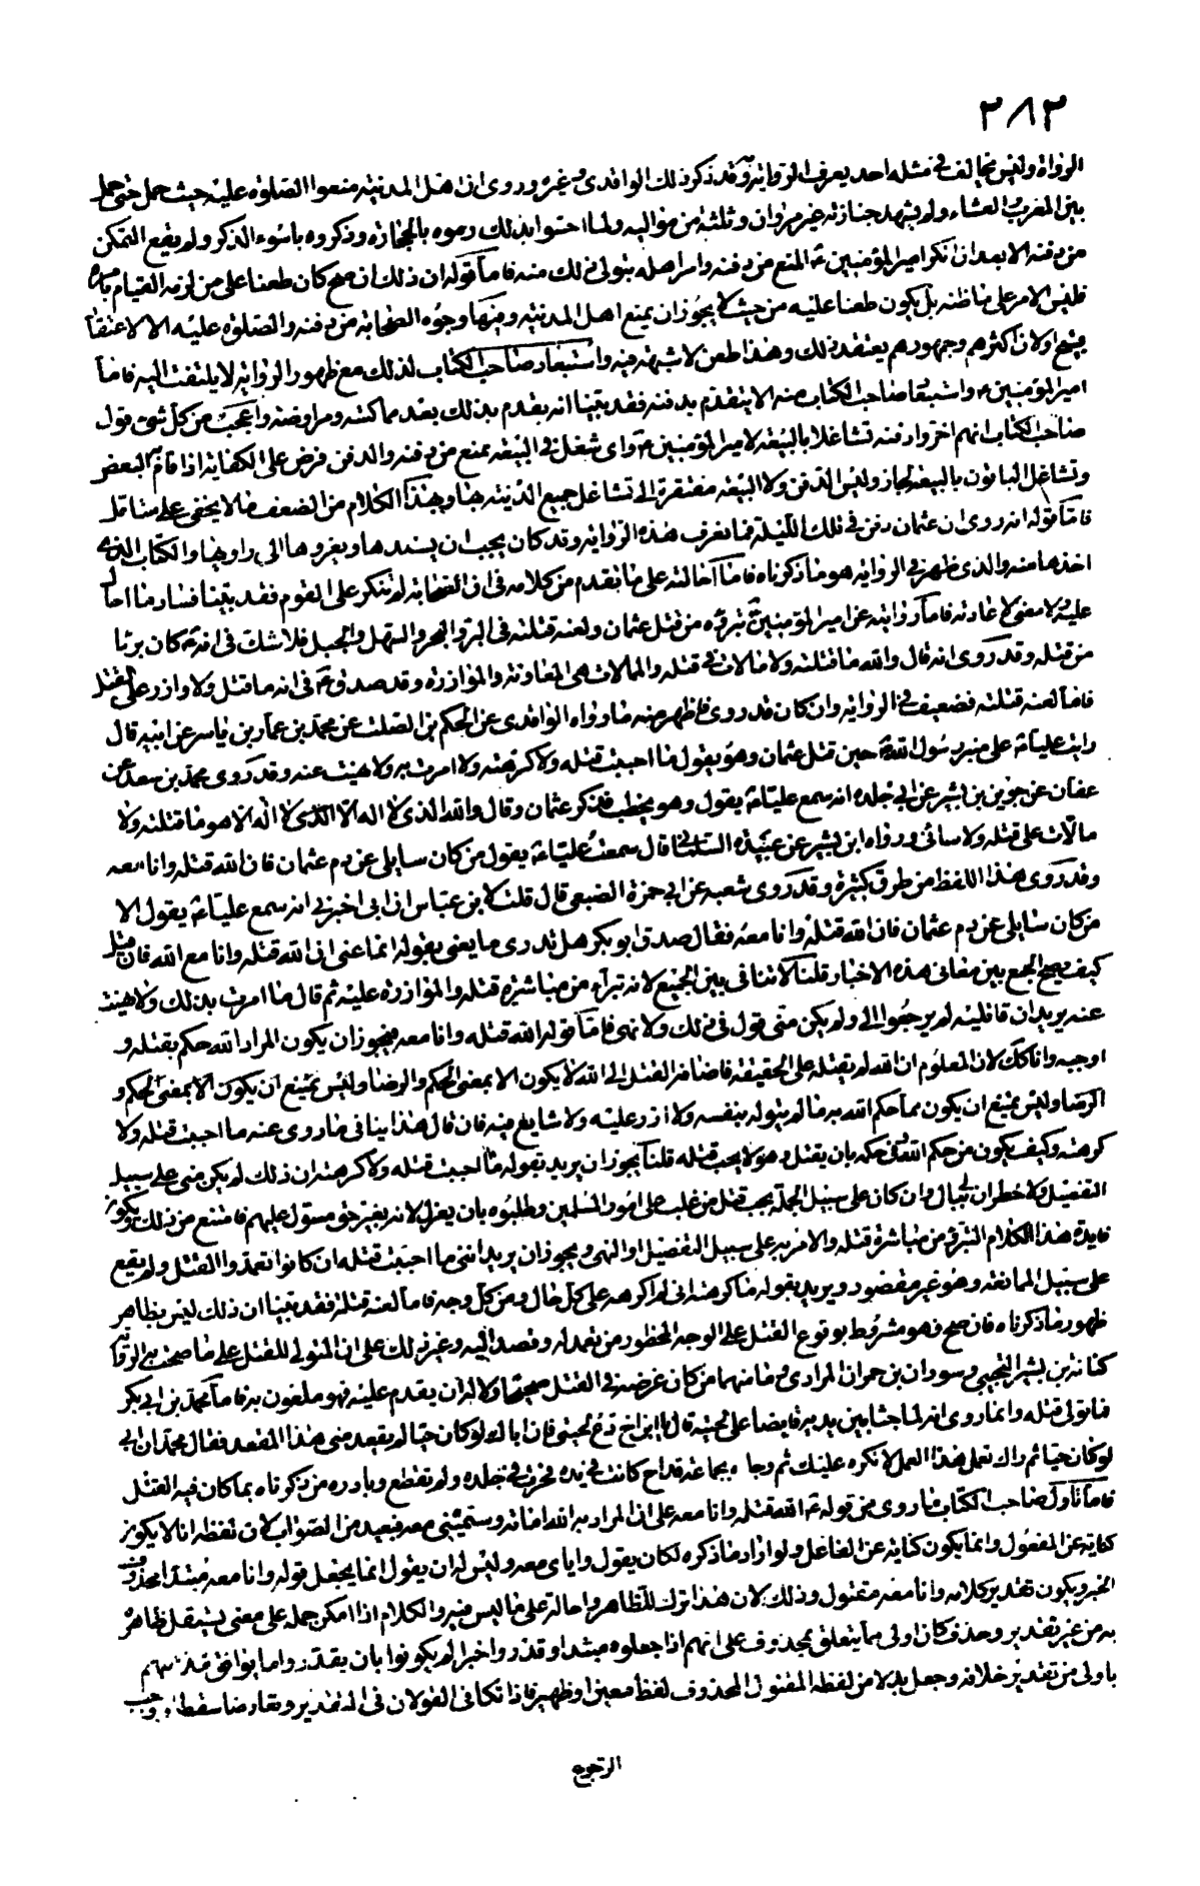 ٢٨٣
الرواة وليس يخالف في مثله احد يعرف الرواية وقد ذكر ذلك الواقدي وغيره وروى ان اهل المدينة منعوا الصلوة عليه حيث حمل حتى حمل
بين المغرب والعشاء ولم يشهد جنازته غير مروان وثلثة من مواليه ولما احسوا بذلك رموه بالحجارة وذكروه باسوء الذكر ولم يقع التمكن
من دفنه الا بعد ان نكر امير المؤمنين ع المنع من دفنه وامر اهله بتولى ذلك منه فاما قوله ان ذلك ان صح كان طعنا على من لزمه القيام بامره
فليس الامر على ما ظنه بل يكون طعنا عليه من حيث لا يجوز ان يمنع اهل المدينة وفيها وجوه الصحابة من دفنه والصلوة عليه الا لاعتقاد
قبيح اولان اكثرهم وجمهورهم يعتقد ذلك وهذا طعن لا شبهة فيه واستبعاد صاحب الكتاب لذلك مع ظهور الرواية لا يلتفت اليه فاما
امير المؤمنين ع واستبعاد صاحب الكتاب منه الا يتقدم بدفنه فقد بينا انه تقدم بذلك بعد مماكسة ومراوضة واعجب من كل شيء قول
صاحب الكتاب انهم اخروا دفنه تشاغلا بالبيعة لامير المؤمنين ع واي شغل في البيعة يمنع من دفنه والدفن فرض على الكفاية اذا قام به البعض
وتشاغل الباقون بالبيعة لجاز وليس الدفن ولا البيعة مفتقرة الى تشاغل جميع المدينة بها وهذا الكلام من الضعف ما لا يخفى على متامله
فاما قوله انه روى ان عثمان دفن في تلك الليلة فما نعرف هذه الرواية وقد كان يجب ان يسندها ويعزوها الى راويها والكتاب الذي
اخذها منه والذي ظهر في الرواية هو ما ذكرناه فاما احالته على ما تقدم من كلامه في ان الصحابة لم تنكر على القوم فقد بينا فساد ما احال
عليه ولا معنى لاعادته فاما روايته عن امير المؤمنين ع تبرؤه من قتل عثمان ولعنه قتلته في البر والبحر والسهل والجبل فلا شك في انه ع كان بريا
من قتله وقد روى انه قال والله ما قتلته ولا مالات في قتله والممالات هي المعاونة والموازرة وقد صدق ع في انه ما قتل ولا وازر على القتل
فاما لعنه قتلته فضعيف في الرواية وان كان قد روى فاظهر منه ما رواه الواقدي عن الحكم بن الصلت عن محمد بن عمار بن ياسر عن ابيه قال
رايت عليا ع على منبر رسول الله ص حين قتل عثمان وهو يقول ما احببت قتله ولا كرهته ولا امرت به ولا نهيت عنه وقد روى محمد بن سعد عن
عفان عن جوين بن بشير عن ابي جلدة انه سمع عليا ع يقول وهو يخطب فذكر عثمان وقال والله الذي لا اله الا الذي لا اله الا هو ما قتلته ولا
مالات على قتله ولا سائني ورواه ابن بشير عن عبيدة السلماني قال سمعت عليا ع يقول من كان سايلي عن دم عثمان فان الله قتله وانا معه
وقد روى هذا اللفظ من طرق كثيرة وقد روى شعبة عن ابي حمزة الضبعي قال قلت لابن عباس ان ابي اخبرني انه سمع عليا ع يقول الا
من كان سايلي عن دم عثمان فان الله قتله وانا معه فقال صدق ابوك هل تدري ما يعني بقوله انما عنى ان الله قتله وانا مع الله فان قيل
كيف يصح الجمع بين معاني هذه الاخبار قلنا لا تنافي بين الجميع لانه تبرأ من مباشرة قتله والموازرة عليه ثم قال ما امرت بذلك ولا نهيت
عنه يريد ان قاتليه لم يرجعوا الي ولم يكن مني قول في ذلك ولا نهي فاما قوله الله قتله وانا معه فيجوز ان يكون المراد الله حكم بقتله و
اوجبه وانا كك لان المعلوم ان الله لم يقتله على الحقيقة فاضافة القتل الى الله لا يكون الا بمعنى الحكم والرضا وليس يمتنع ان يكون الا بمعنى الحكم و
الرضا وليس يمتنع ان يكون مما حكم الله به ما لم يتوله بنفسه ولا ازر عليه ولا شايع فيه فان قال هذا ينافي ما روى عنه ما احببت قتله ولا
كرهته وكيف يكون من حكم الله وفي حكمه بان يقتل وهو لا يحب قتله قلنا يجوز ان يريد بقوله ما احببت قتله ولا كرهته ان ذلك لم يكن مني على سبيل
التفصيل ولا خطر لي ببال وان كان على سبيل الجملة يحب قتل من غلب على امور المسلمين وطلبوه بان يعزل لانه بغير حق مستول عليهم فامتنع من ذلك ويكون
فايدة هذا الكلام التبرؤ من مباشرة قتله والامر به على سبيل التفصيل او النهي ويجوز ان يريد انني ما احببت قتله ان كانوا تعمدوا القتل ولم يقع
على سبيل الممانعة وهو غير مقصود ويريد بقوله ما كرهته اني لم اكرهه على كل حال ومن كل وجه فاما لعنه قتلته فقد بينا ان ذلك ليس بظاهر
ظهور ما ذكرناه فان صح فهو مشروط بوقوع القتل على الوجه المحظور من تعمد له وقصد اليه وغير ذلك على ان المتولي للقتل على ما صحت به الرواية
كنانة بن بشير التجيبي وسودان بن حمران المرادي وما منهما من كان غرضه في القتل صحيحا ولا له ان يقدم عليه فهو ملعون به فاما محمد بن ابي بكر
فما تولى قتله وانما روى انه لما جثا بين يديه قابضا على لحيته قال يا ابن اخي دع لحيتي فان اباك لو كان حيا لم يقعد مني هذا المقعد فقال محمد ان ابي
لو كان حيا ثم راك تعمل هذا العمل لانكره عليك ثم وجاه بجماعة قداح كانت في يده فحزت في جلده ولم تقطع وبادره من ذكرناه بما كان فيه القتل
فاما تاول صاحب الكتاب ما روى من قوله ع الله قتله وانا معه على ان المراد به الله اماته وسيميتني معه فبعيد من الصواب لان لفظة انا لا يكون
كناية عن المفعول وانما يكون كناية عن الفاعل ولو اراد ما ذكره لكان يقول واياي معه وليس له ان يقول انما يجعل قوله وانا معه مبتدا محذوف
الخبر ويكون تقدير كلامه وانا معه مقتول وذلك لان هذا ترك للظاهر واحالة على ما ليس فيه والكلام اذا امكن حمله على معنى يستقل ظاهره
به من غير تقدير وحذف كان اولى مما يتعلق بمحذوف على انهم اذا جعلوه مبتدا وقدروا خبرا لم يكونوا بان يقدروا ما يوافق مذهبهم
باولى من تقدير خلافه وجعل بدلا من لفظة المقتول المحذوف لفظ معين او ظهير فاذا تكافى القولان في التقدير وتعارضا سقطا ووجب
الرجوع